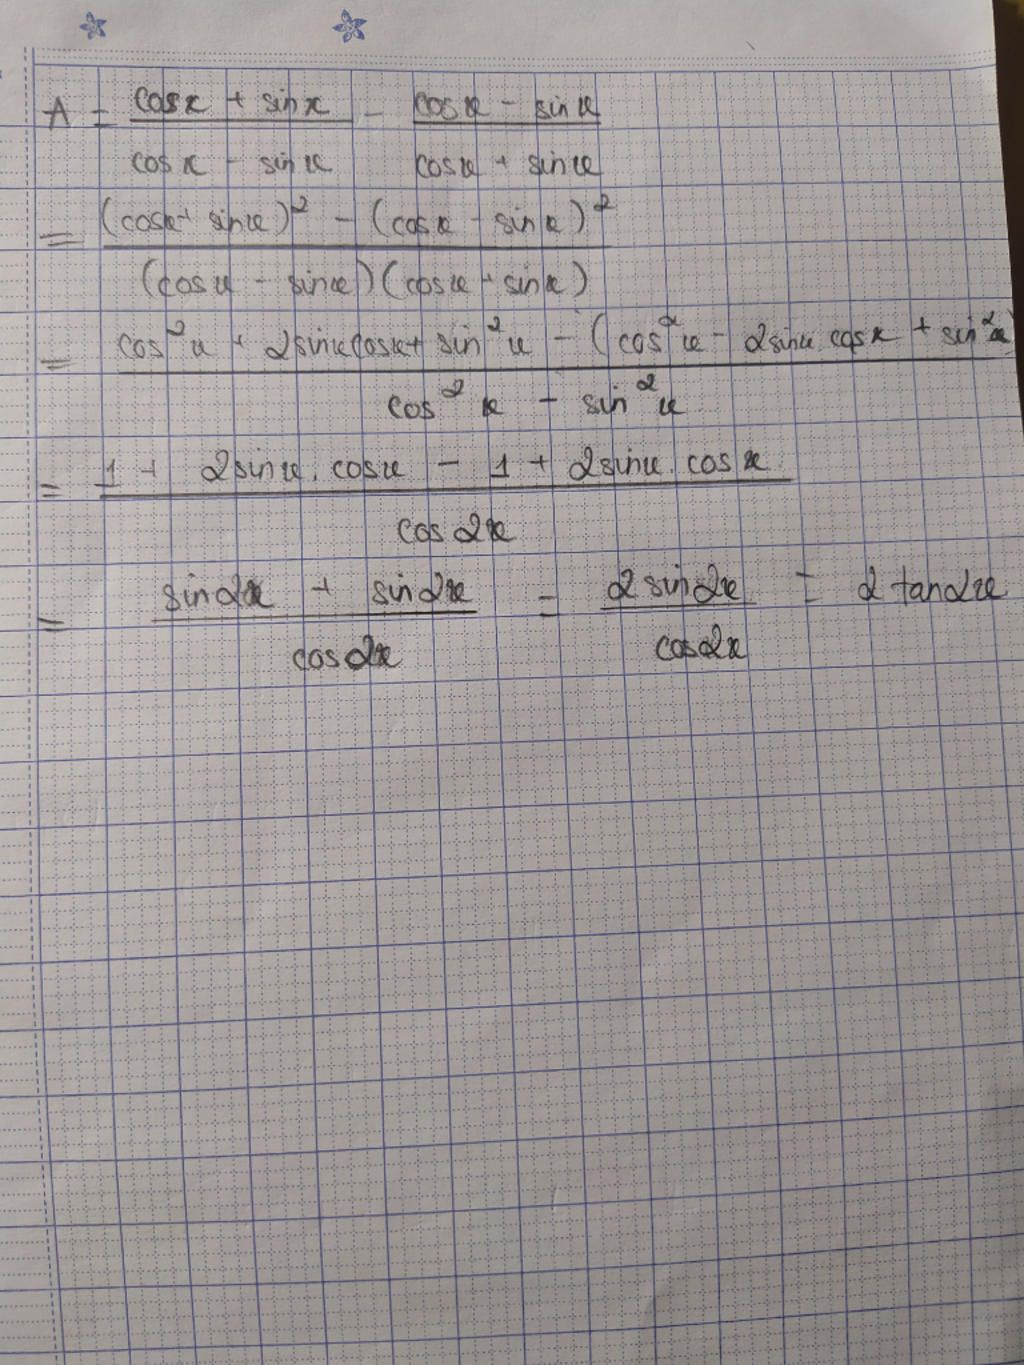 A = (cosx + sinx)/(cosx - sinx) - (cosx - sinx)/(cosx + sinx)
= ((cosx + sinx)² - (cosx - sinx)²)/((cosx - sinx)(cosx + sinx))
= (cos²x + 2sinxcosx + sin²x - (cos²x - 2sinx.cosx + sin²x))/(cos²x - sin²x)
= (1 + 2sinx.cosx - 1 + 2sinx.cosx)/(cos2x)
= (sin2x + sin2x)/(cos2x) = (2sin2x)/(cos2x) = 2tan2x